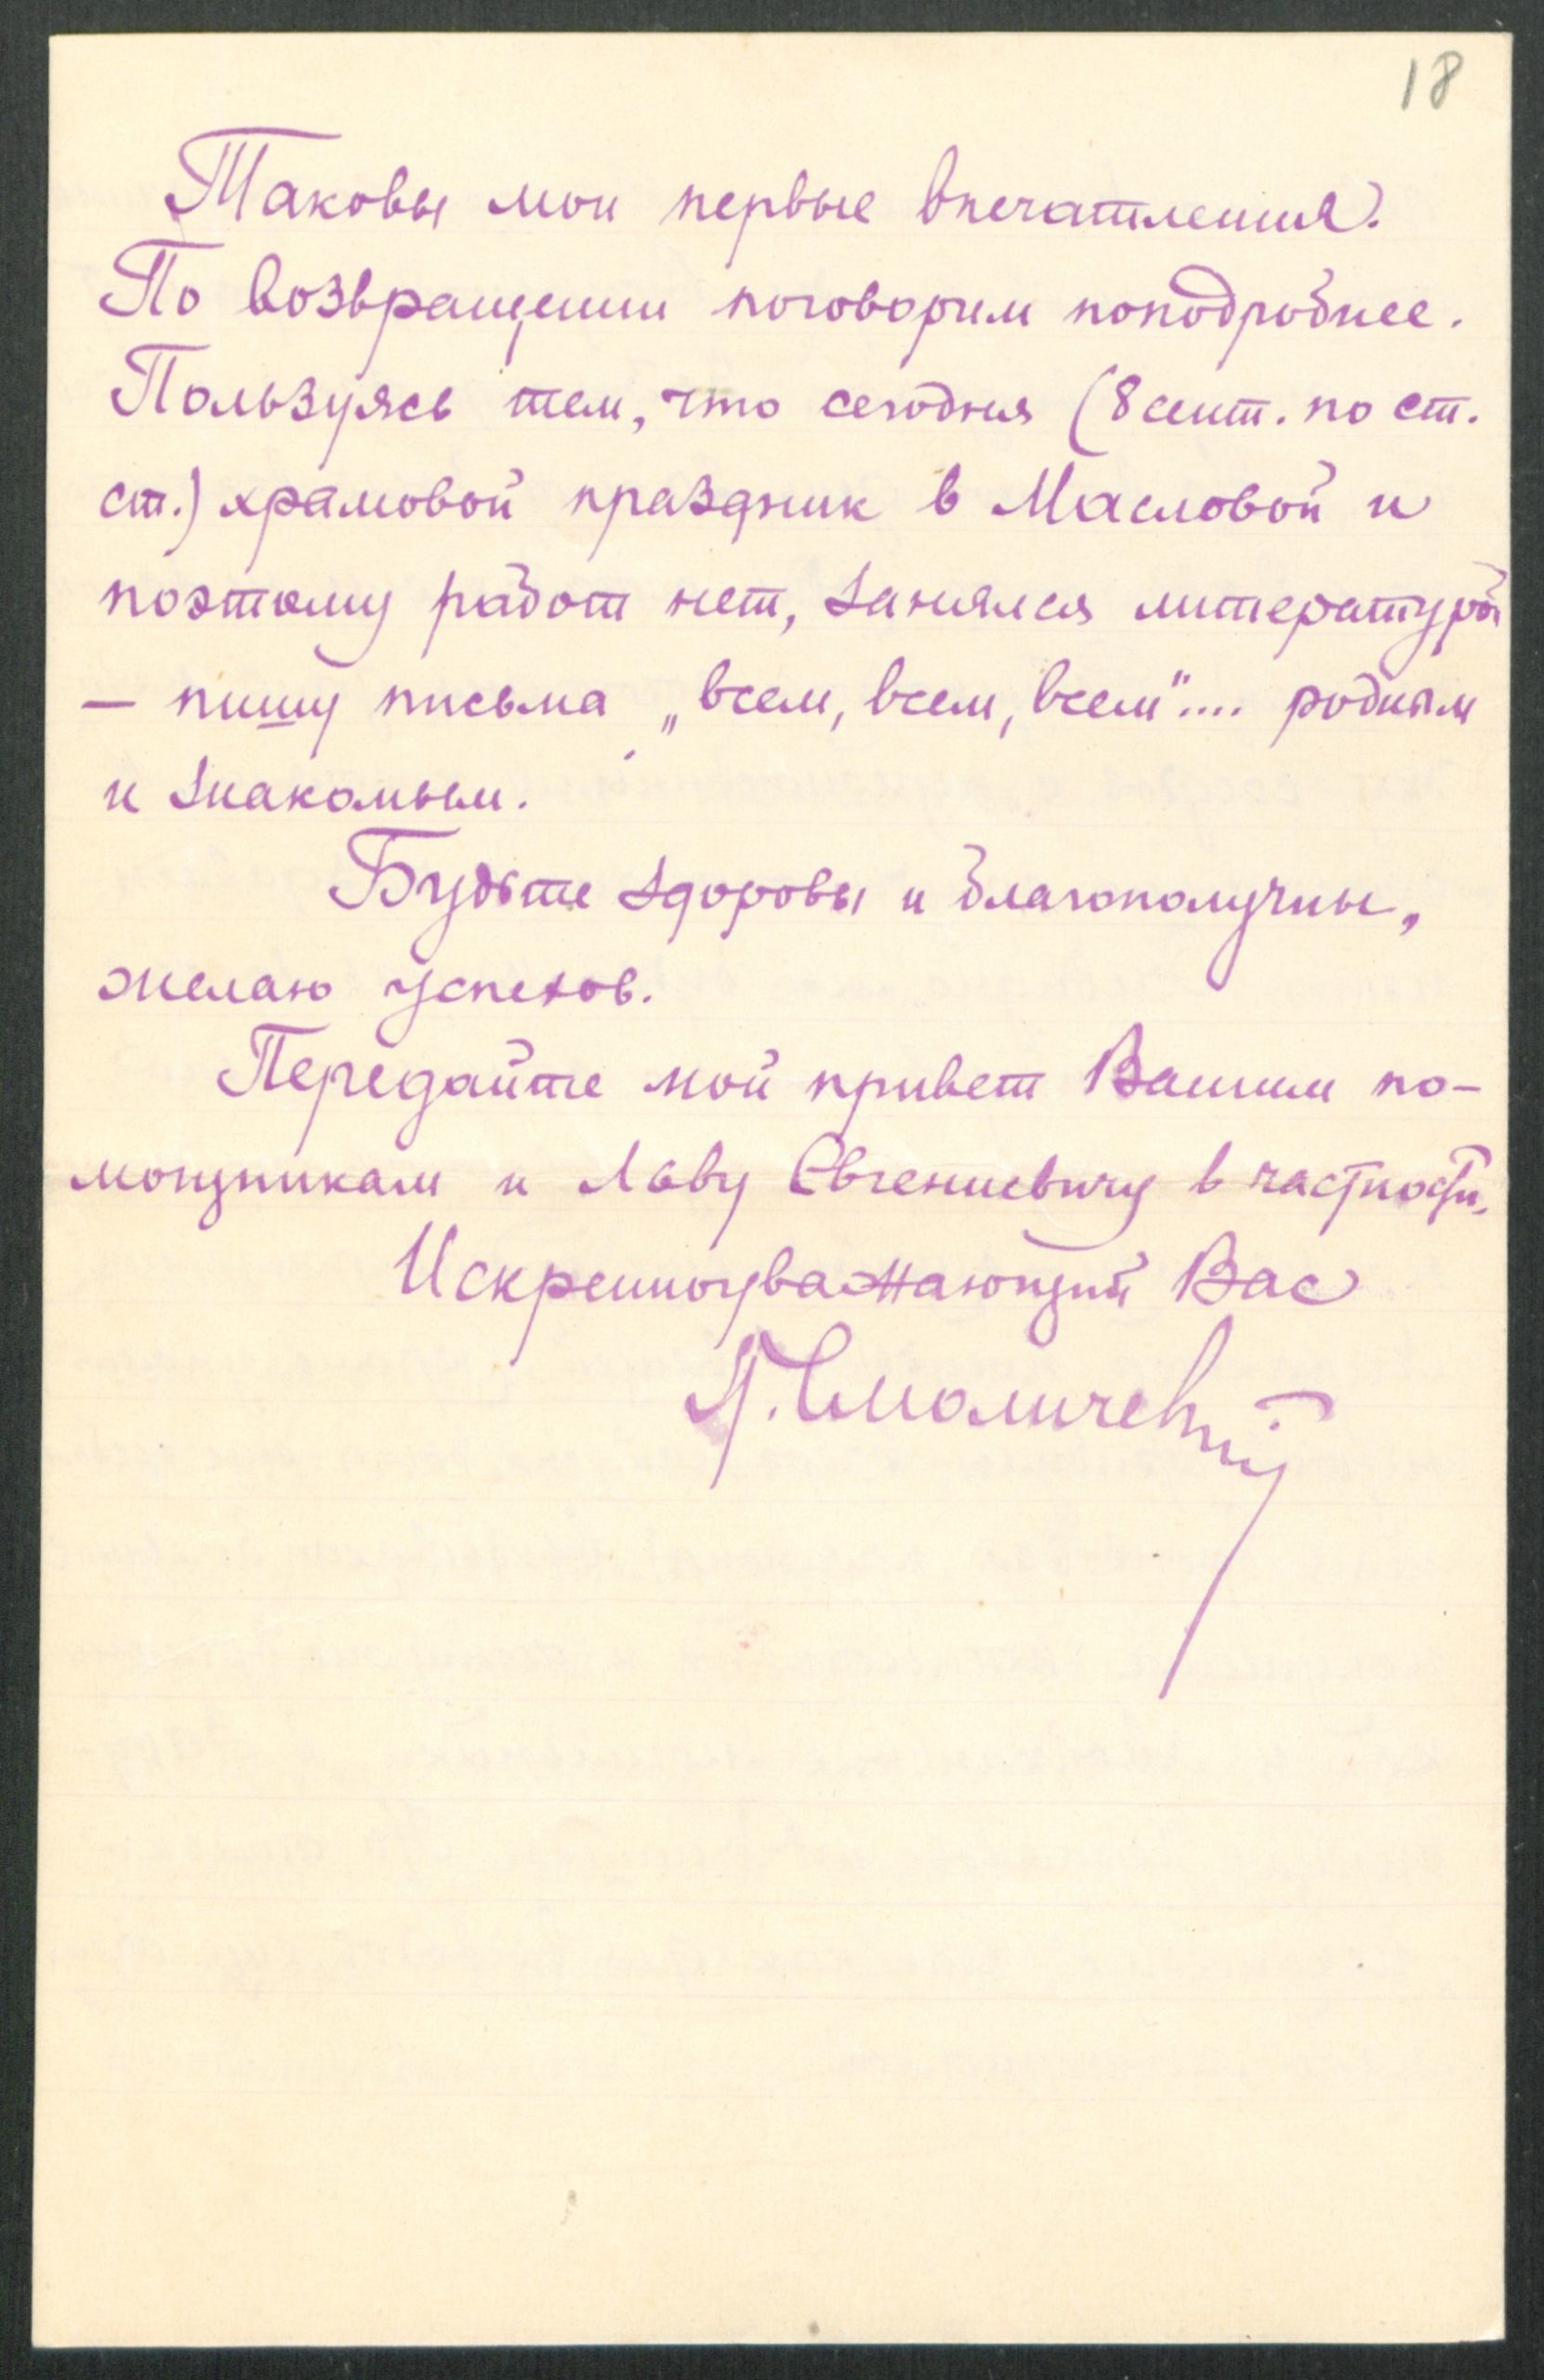 18
Таковы мои первые впечатления.
По возвращении поговорим поподробнее.
Пользуясь тем, что сегодня (8 сент. по ст.
ст.) храмовой праздник в Масловой и
поэтому работ нет, занялся литературой
— пишу письма „всем, всем, всем".... родным
и знакомым.
Будьте здоровы и благополучны,
желаю успехов.
Передайте мой привет Вашим по-
мощникам и Льву Евгениевичу в частности.
Искренноуважающий Вас
П. Смоличевский